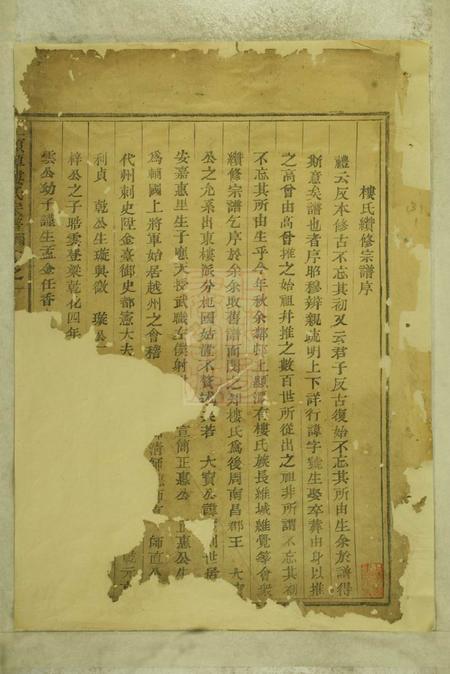 樓氏續修宗譜序
禮云反本修古不忘其初又云君子反古復始不忘其所由生余於譜得
斯意矣譜也者序昭穆辨親疏明上下詳行諱字號生娶卒葬由身以推
之高曾由高曾推之始祖并推之數百世所從出之祖非所謂不忘其初
不忘其所由生乎今年秋余鄰邨上顯源有樓氏族長維城維覺等會衆
續修宗譜乞序於余余取舊譜而閱之知樓氏為後周南昌郡王 大
公之允系出東樓派分杞國姑置不贅述矣若 大寶公 世居
安嘉惠里生子 大授武職左僕射 宣簡正惠公 惠公生
為輔國上將軍始居越州之會稽
代州刺史陞金臺御史部憲大夫 師直公
利貞 乾公生璇與徵 璇公 乾元
梓公之子晧雲登梁乾化四年
雲公幼子 生孟金任香